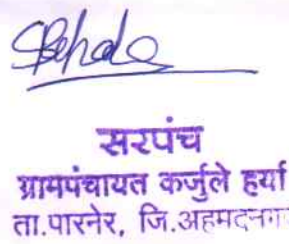 सरपंच
ग्रामपंचायत कर्जुले हर्या
ता.पारनेर, जि.अहमदनगर